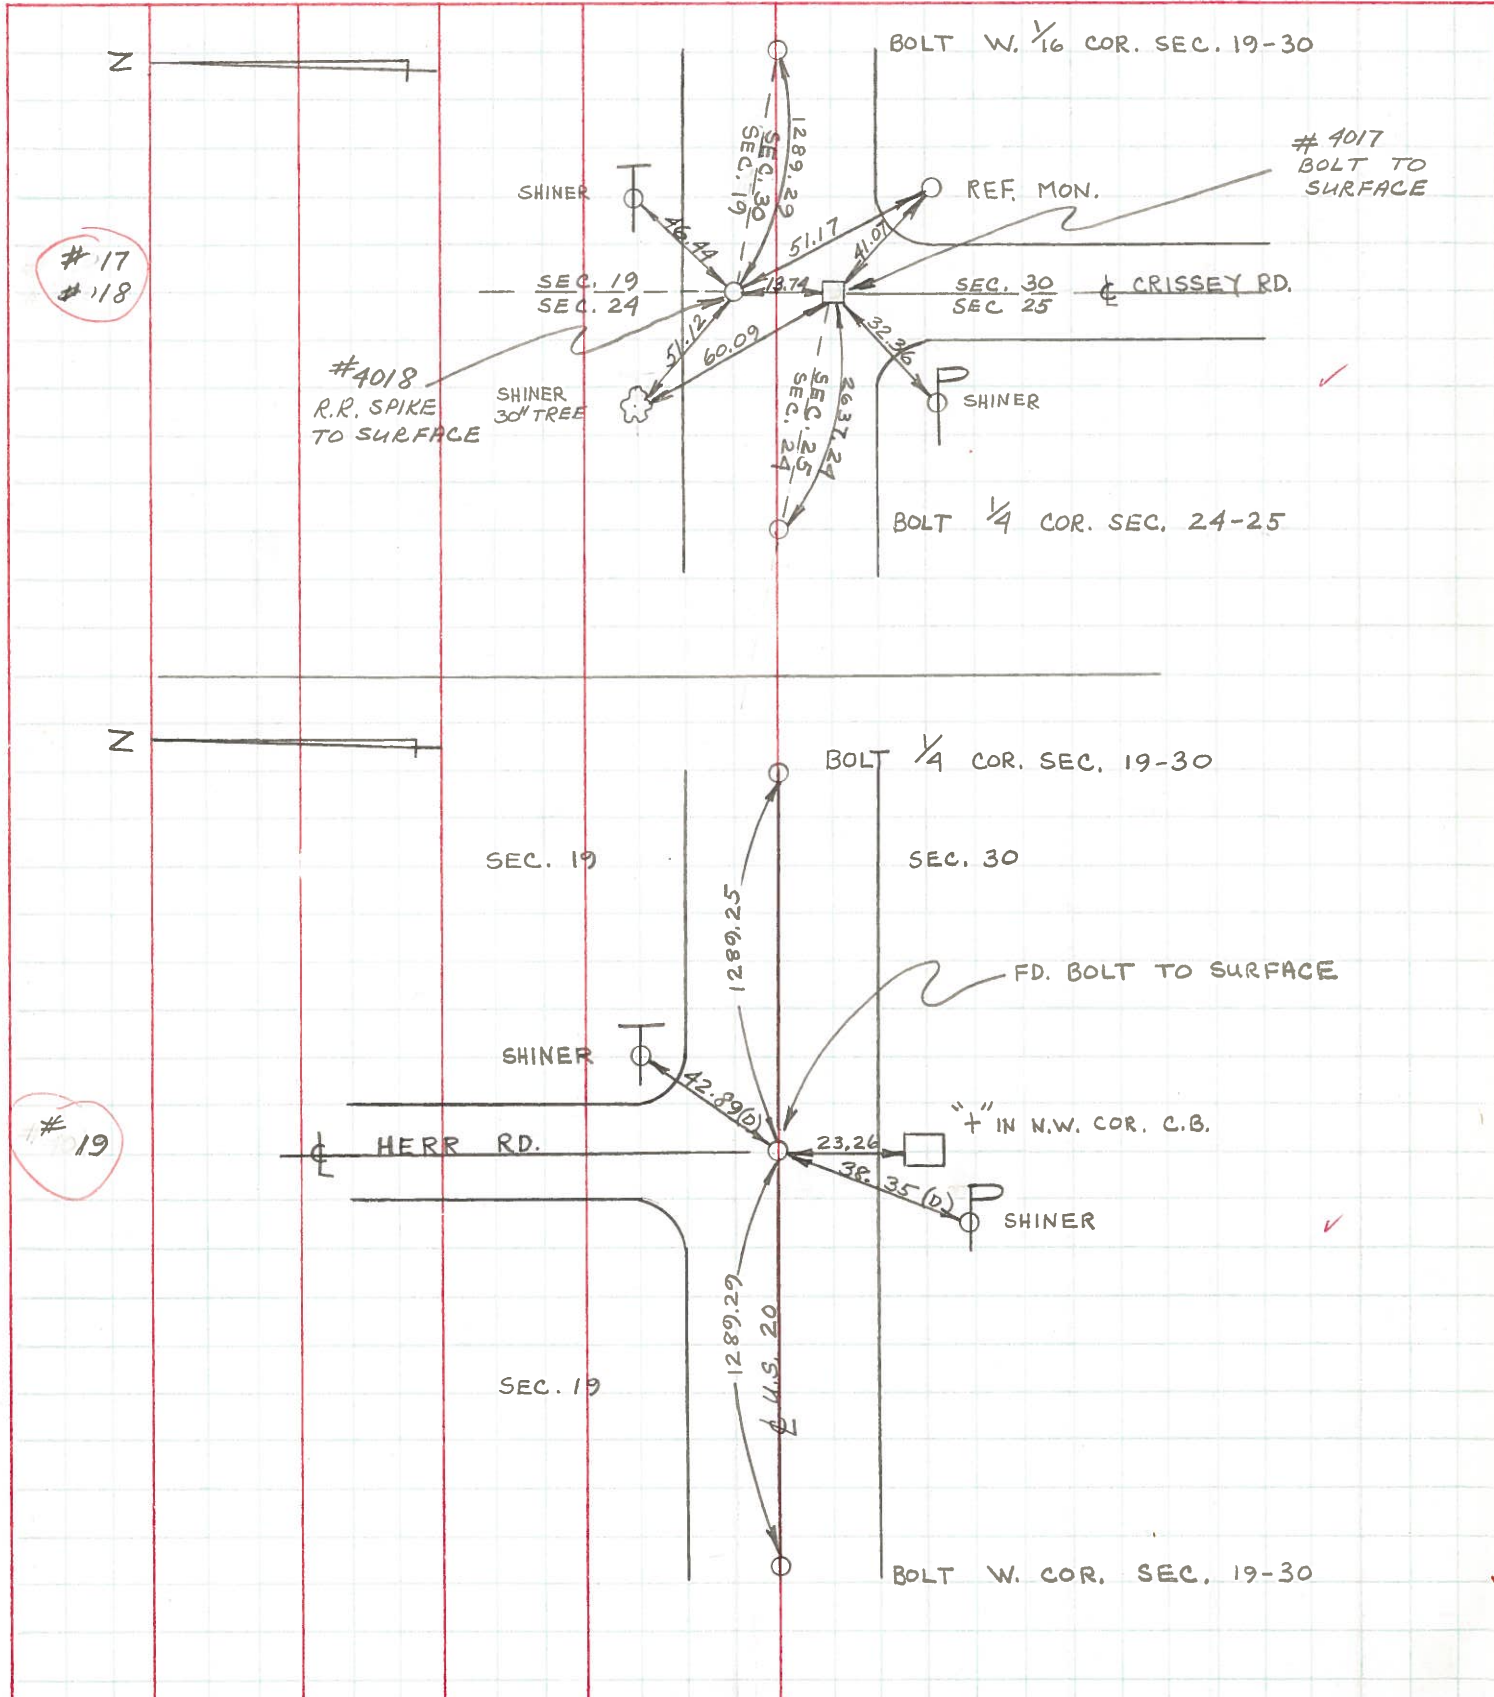 N
BOLT W. 1/16 COR. SEC. 19-30
# 4017
BOLT TO
SURFACE
SHINER
SEC. 30
SEC. 19
1289.29
REF. MON.
46.44
51.17
41.07
#17
#18
SEC. 19
SEC. 24
13.74
SEC. 30
SEC 25
℄ CRISSEY RD.
51.12
60.09
32.36
#4018
R.R. SPIKE
TO SURFACE
SHINER
30" TREE
SEC. 25
SEC. 24
2637.24
SHINER
BOLT 1/4 COR. SEC. 24-25
N
BOLT 1/4 COR. SEC. 19-30
SEC. 19
SEC. 30
1289.25
FD. BOLT TO SURFACE
SHINER
42.89(D)
#
19
℄ HERR RD.
23.26
"+" IN N.W. COR. C.B.
38.35(D)
SHINER
1289.29
℄ U.S. 20
SEC. 19
BOLT W. COR. SEC. 19-30